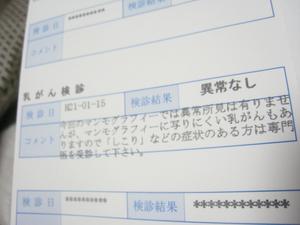 検診日 ********** 検診結果
コメント
乳がん検診
検診日 H21-01-15 検診結果 異常なし
コメント
今回のマンモグラフィーでは異常所見は有りませ
んが、マンモグラフィーに写りにくい乳がんもあ
りますので「しこり」などの症状のある方は専門
医を受診して下さい。
検診日 ********** 検診結果 ************